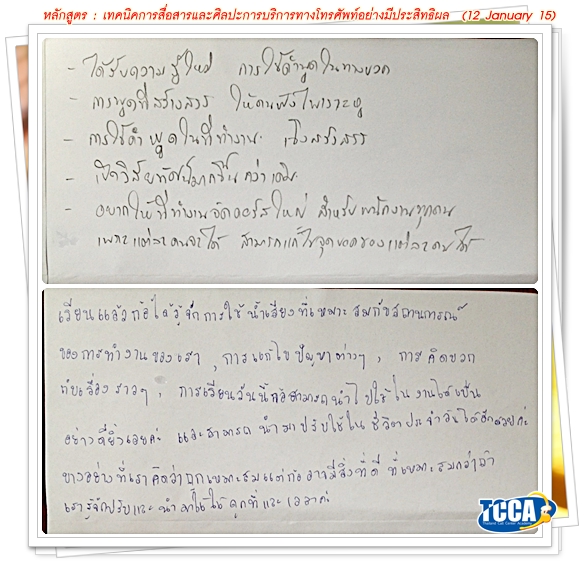 หลักสูตร : เทคนิคการสื่อสารและศิลปะการบริการทางโทรศัพท์อย่างมีประสิทธิผล (12 January 15)
- ได้รับความรู้ใหม่ การใช้คำพูดในทางบวก
- การพูดที่สร้างสรร ให้คนฟังไพเราะหู
- การใช้คำพูดในที่ทำงาน เชิงสร้างสรร
- เปิดวิสัยทัศน์มากขึ้นกว่าเดิม
- อยากให้ที่ทำงานจัดคอร์สใหม่ สำหรับพนักงานทุกคน
เพราะแต่ละคนจะได้ สามารถแก้ไขจุดบอดของแต่ละคนได้
เรียนแล้วก้อได้รู้จักการใช้น้ำเสียงที่เหมาะสมกับสถานการณ์
ของการทำงานของเรา , การแก้ไขปัญหาต่างๆ , การคิดบวก
กับเรื่องราวๆ , การเรียนวันนี้ก้อสามารถนำไปใช้ในงานได้เป็น
อย่างดียิ่งเลยค่ะ และสามารถนำมาปรับใช้ในชีวิตประจำวันได้อีกด้วยค่ะ
บางอย่างที่เราคิดว่าถูกเหมาะสมแต่ก้ออาจมีสิ่งที่ดี ที่เหมาะสมกว่าถ้า
เรารู้จักปรับและนำมาใช้ให้ถูกที่และเวลาค่ะ
TCCA
Thailand Call Center Academy